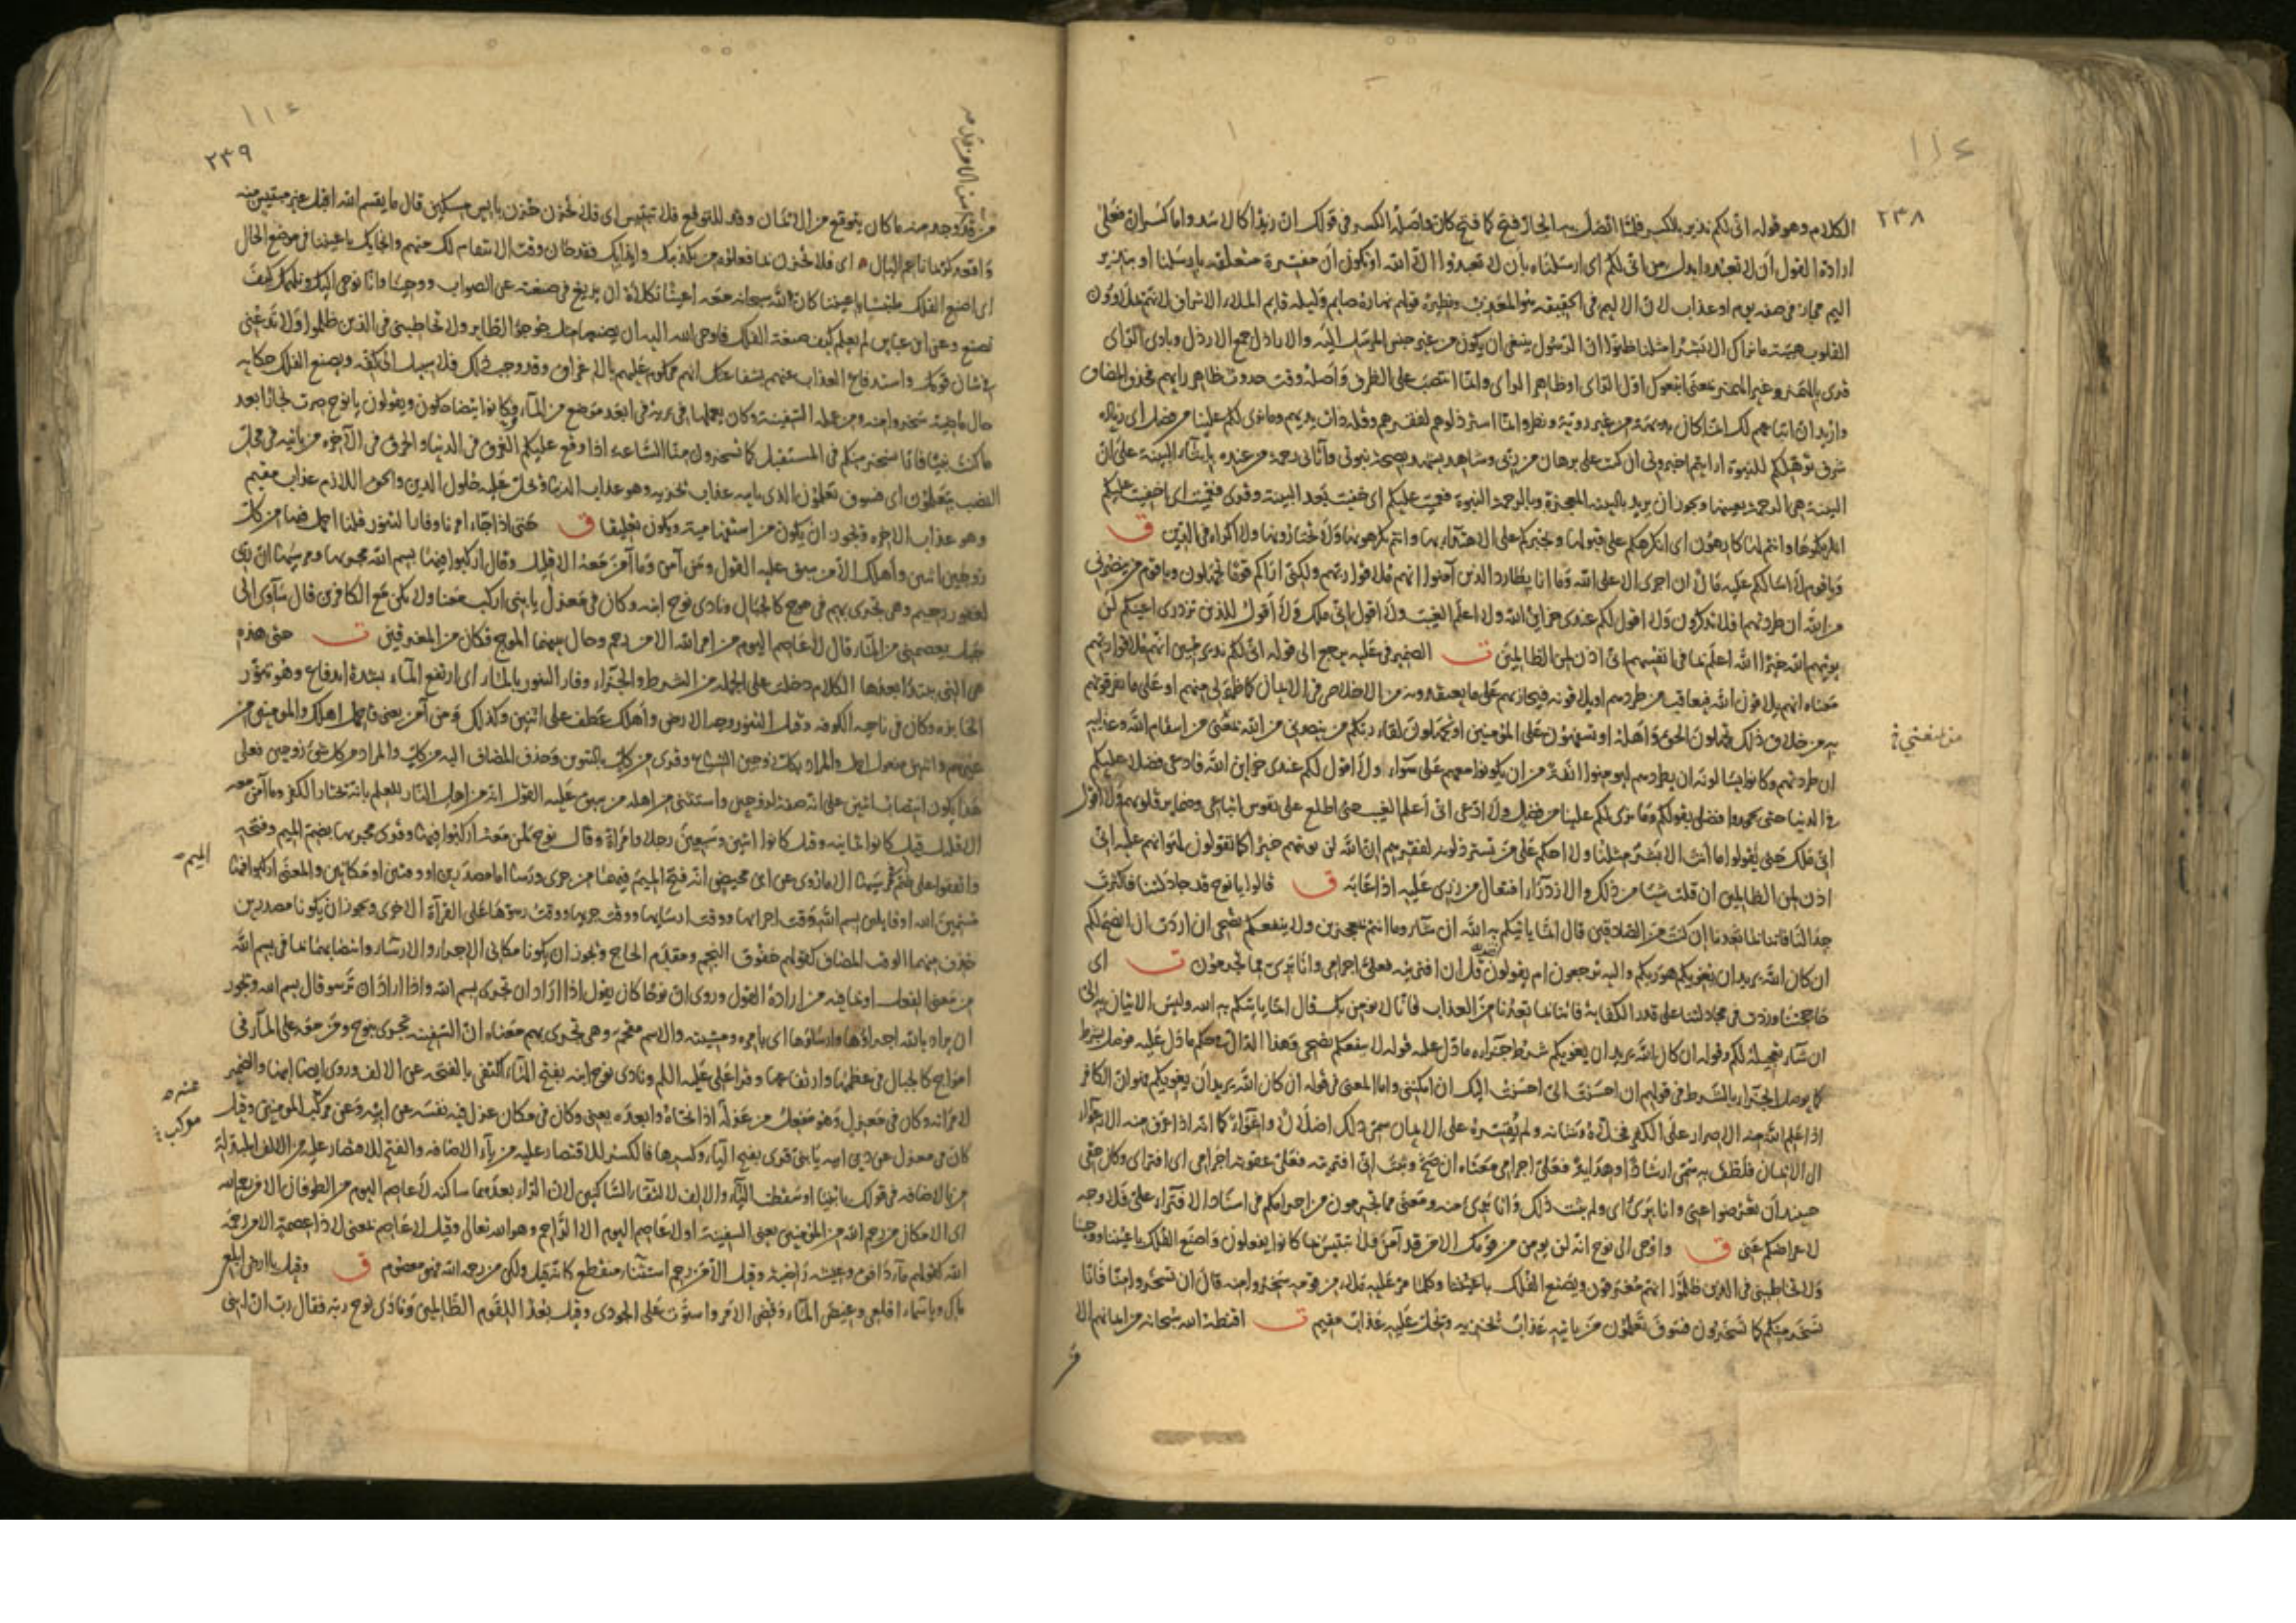 ٢٣٨
الكلام وهو قوله انى لكم نذير بالكسر فلما اتصل به الجار فتح كما فتح كان واصله الكسر فى قولك ان زيدا كالاسد واما كسر ان فعلى
ارادة القول ان لا تعبدوا بدل من انى لكم اى ارسلناه بان لا تعبدوا الا الله او يكون ان مفسرة متعلقة بارسلنا او بنذير
اليم مجاز فى صفة يوم او عذاب لان الاليم فى الحقيقة هو المعذب ونظيره قولهم نهاره صايم وليله قايم الملاء الاشراف لانهم يملاءون
القلوب هيبة ما نراك الا بشرا مثلنا ظنوا ان الرسول ينبغى ان يكون من غير جنس المرسل اليه والاراذل جمع الارذل وبادى الراى
قرى بالهمز وغير الهمز بمعنى اتبعوك اول الراى او ظاهر الراى وانما انتصب على الظرف واصله وقت حدوث ظاهر رايهم فحذف المضاف
وارید ان اتباعهم لك انما كان بديهة من غير روية ونظر وانما استرذلوهم لفقرهم وقلة ذات يديهم وما نرى لكم علينا من فضل اى زيادة
شرف تؤهلكم للنبوة ارايتم اخبرونى ان كنت على برهان من ربى وشاهد يشهد بصحة نبوتى وآتانى رحمة من عنده بايتاء البينة على ان
البينة هى الرحمة بعينها ويجوز ان يريد بالبينة المعجزة وبالرحمة النبوة فعميت عليكم اى خفيت بعد البينة وقرى فعميت اى اخفيت عليكم
انلزمكموها وانتم لها كارهون اى انكرهكم على قبولها ونجبركم على الاهتداء بها وانتم تكرهونها ولا تختارونها ولا اكراه فى الدين ق
ويا قوم لا اسالكم عليه مالا ان اجرى الا على الله وما انا بطارد الذين آمنوا انهم ملاقوا ربهم ولكنى اراكم قوما تجهلون ويا قوم من ينصرنى
من الله ان طردتهم افلا تذكرون ولا اقول لكم عندى خزاين الله ولا اعلم الغيب ولا اقول انى ملك ولا اقول للذين تزدرى اعينكم لن
يوتيهم الله خيرا الله اعلم بما فى انفسهم انى اذن لمن الظالمين ت الضمير فى عليه يرجع الى قوله انى لكم نذير مبين انهم ملاقوا ربهم
معناه انهم يلاقون الله فيعاقب من طردهم او يلاقونه فيجازيهم على ما يعتقدونه من الاخلاص فى الايمان كما ظهر لى منهم او على ما تقرفونهم
به من خلاف ذلك تجهلون الحق واهله او تتسفهون على المؤمنين او تجهلون لقاء ربكم من ينصرنى من الله يمنعنى من انتقام الله وعذابه
ان طردتهم وكانوا يسالونه ان يطردهم ليومنوا انفة من ان يكونوا معهم على سواء ولا اقول لكم عندى خزاين الله فادعى فضلا عليكم
فى الدنيا حتى تجحدوا فضلى بقولكم وما نرى لكم علينا من فضل ولا ادعى انى اعلم الغيب حتى اطلع على نفوس اتباعى وضماير قلوبهم ولا اقول
انى ملك حتى يقولوا ما انت الا بشر مثلنا ولا احكم على من تسترذلون لفقرهم ان الله لن يوتيهم خيرا كما تقولون لهوانهم عليه انى
اذن لمن الظالمين ان قلت شيئا من ذلك والازدراء افتعال من زرى عليه اذا عابه ق قالوا يا نوح قد جادلتنا فاكثرت
جدالنا فاتنا بما تعدنا ان كنت من الصادقين قال انما ياتيكم به الله ان شاء وما انتم بمعجزين ولا ينفعكم نصحى ان اردت ان انصح لكم
ان كان الله يريد ان يغويكم هو ربكم واليه ترجعون ام يقولون افتريه قل ان افتريته فعلى اجرامى وانا برى مما تجرمون ت اى
حاججتنا وزدت فى مجادلتنا على قدر الكفاية فاتنا بما تعدنا من العذاب فانا لا نومن بك قال انما ياتيكم به الله وليس الاتيان به الى
ان شاء تعجيله لكم وقوله ان كان الله يريد ان يغويكم شرط جزاوه ما دل عليه قوله لا ينفعكم نصحى وهذا الدال فى حكم ما دل عليه فوصل بشرط
كما يوصل الجزاء بالشرط فى قولهم ان احسنت الى احسنت اليك ان امكننى واما المعنى فى قوله ان كان الله يريد ان يغويكم فهو ان الكافر
اذا علم الله منه الاصرار على الكفر فخلاه وشانه ولم يقسره على الايمان سمى ذلك اضلالا واغواء كما انه اذا عرف منه الارعواء
الى الايمان فلطف به سمى ارشادا وهداية فعلى اجرامى معناه ان صح وثبت انى افتريته فعلى عقوبة اجرامى اى افتراى وكان حقى
حينئذ ان تعرضوا عنى وانا برى اى ولم يثبت ذلك وانا برى منه ومعنى مما تجرمون من اجرامكم فى اسناد الافتراء على فلا وجه
لاعراضكم عنى ق واوحى الى نوح انه لن يومن من قومك الا من قد آمن فلا تبتئس بما كانوا يفعلون واصنع الفلك باعيننا ووحينا
ولا تخاطبنى فى الذين ظلموا انهم مغرقون ويصنع الفلك باعيننا وكلما مر عليه ملاء من قومه سخروا منه قال ان تسخروا منا فانا
نسخر منكم كما تسخرون فسوف تعلمون من ياتيه عذاب يخزيه ويحل عليه عذاب مقيم ت اقنطه الله سبحانه من ايمانهم الا
٢٣٩
من قد وجد منه ما كان يتوقع من الايمان وقد للتوقع فلا تبتئس اى فلا تحزن حزن بايس مسكين قال ما يقسم الله اقبل غير مبتئس منه
واقعد كريما ناعم البال اى فلا تحزن بما فعلوه من تكذيبك وايذايك فقد حان وقت الانتقام لك منهم وانجايك باعيننا فى موضع الحال
اى اصنع الفلك ملتبسا باعيننا كان لله سبحانه معه اعينا تكلاه ان يزيغ فى صنعته عن الصواب ووحينا وانا نوحى اليك ونلهمك كيف
تصنع وعن ابن عباس لم يعلم كيف صنعة الفلك فاوحى الله اليه ان يصنعها مثل جوجؤ الطاير ولا تخاطبنى فى الذين ظلموا ولا تدعنى
فى شان قومك واستدفاع العذاب عنهم بشفاعتك انهم محكوم عليهم بالاغراق وقد وجب ذلك فلا سبيل الى كفه ويصنع الفلك حكاية
حال ماضية سخروا منه ومن عمله السفينة وكان يعملها فى برية فى ابعد موضع من الماء وكانوا يتضاحكون ويقولون يا نوح صرت نجارا بعد
ما كنت نبيا فانا نسخر منكم فى المستقبل كما تسخرون منا الساعة اذا وقع عليكم الغرق فى الدنيا والحرق فى الآخرة من ياتيه فى محل
النصب بتعلمون اى فسوف تعلمون الذى ياتيه عذاب يخزيه وهو عذاب الدنيا ويحل عليه حلول الدين والحق اللازم عذاب مقيم
وهو عذاب الاخرة ويجوز ان يكون من استفهامية ويكون تعليقا ق حتى اذا جاء امرنا وفار التنور قلنا احمل فيها من كل
زوجين اثنين واهلك الا من سبق عليه القول ومن آمن وما آمن معه الا قليل وقال اركبوا فيها بسم الله مجريها ومرسيها ان ربى
لغفور رحيم وهى تجرى بهم فى موج كالجبال ونادى نوح ابنه وكان فى معزل يا بنى اركب معنا ولا تكن مع الكافرين قال سآوى الى
جبل يعصمنى من الماء قال لا عاصم اليوم من امر الله الا من رحم وحال بينهما الموج فكان من المغرقين ت حتى هذه
هى التى يبتدا بعدها الكلام دخلت على الجملة من الشرط والجزاء وفار التنور بالماء اى ارتفع الماء بشدة اندفاع وهو تنور
الخابزة وكان فى ناحية الكوفة وقيل التنور وجه الارض واهلك عطف على اثنين وكذلك ومن آمن يعنى فاحمل اهلك والمومنين من
غيرهم واثنين مفعول احمل والمراد بكل زوجين الشياع وقرى من كل بالتنوين وحذف المضاف اليه من كل والمراد من كل شئ زوجين فعلى
هذا يكون انتصاب اثنين على انه صفة لزوجين واستثنى من اهله من سبق عليه القول انه من اهل النار للعلم بانه تختار الكفر وما آمن معه
الا قليل قيل كانوا ثمانية وقيل كانوا اثنين وسبعين رجلا وامراة وقال نوح لمن معه اركبوا فيها وقرى مجريها بضم الميم وفتحه
الميم
واتفقوا على ضم مرسيها الا ما روى عن ابن محيصن انه فتح الميم فيهما من جرى ورسا اما مصدرين او وقتين او مكانين والمعنى اركبوا فيها
مسمين الله او قايلين بسم الله وقت اجرايها ووقت ارسايها ووقت جريها ووقت رسوها على القراءة الاخرى ويجوز ان يكونا مصدرين
حذف منهما الوقت المضاف كقولهم خفوق النجم ومقدم الحاج ويجوز ان يكونا مكانى الاجراء والارساء وانتصابهما بما فى بسم الله
من معنى الفعل او بما فيه من ارادة القول وروى ان نوحا كان يقول اذا اراد ان تجرى بسم الله واذا اراد ان ترسو قال بسم الله ويجوز
ان يراد بالله اجراؤها وارساؤها اى بامره ومشيته والاسم مقحم وهى تجرى بهم معناه ان السفينة تجرى بنوح ومن معه على الماء فى
امواج كالجبال فى عظمها وارتفاعها وقرا على عليه السلم ونادى نوح ابنه بفتح الهاء اكتفى بالفتحة عن الالف وروى ايضا ابنها والضمير
لامراته وكان فى معزل وهو مفعل من عزله اذا نحاه وابعده يعنى وكان فى مكان عزل فيه نفسه عن ابيه وعن مركب المومنين وقيل
عنه
مركب
كان فى معزل عن دين ابيه يا بنى قرى بفتح الياء وكسرها فالكسر للاقتصار عليه من ياء الاضافة والفتح للاقتصار عليه من الالف المبدلة
من ياء الاضافة فى قولك يا بنيا او سقطت الياء والالف لالتقاء الساكنين لان الراء بعدهما ساكنة لا عاصم اليوم من الطوفان الا من رحم الله
اى الا مكان من رحم الله من المؤمنين يعنى السفينة او لا عاصم اليوم الا الراحم وهو الله تعالى وقيل لا عاصم بمعنى لا ذا عصمة الا من رحمه
الله كقولهم ماء دافق وعيشة راضية وقيل الا من رحم استثناء منقطع كانه قيل ولكن من رحمه الله فهو معصوم ق وقيل يا ارض ابلعى
ماءك ويا سماء اقلعى وغيض الماء وقضى الامر واستوت على الجودى وقيل بعدا للقوم الظالمين ونادى نوح ربه فقال رب ان ابنى